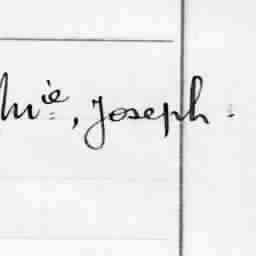 Mie, Joseph.